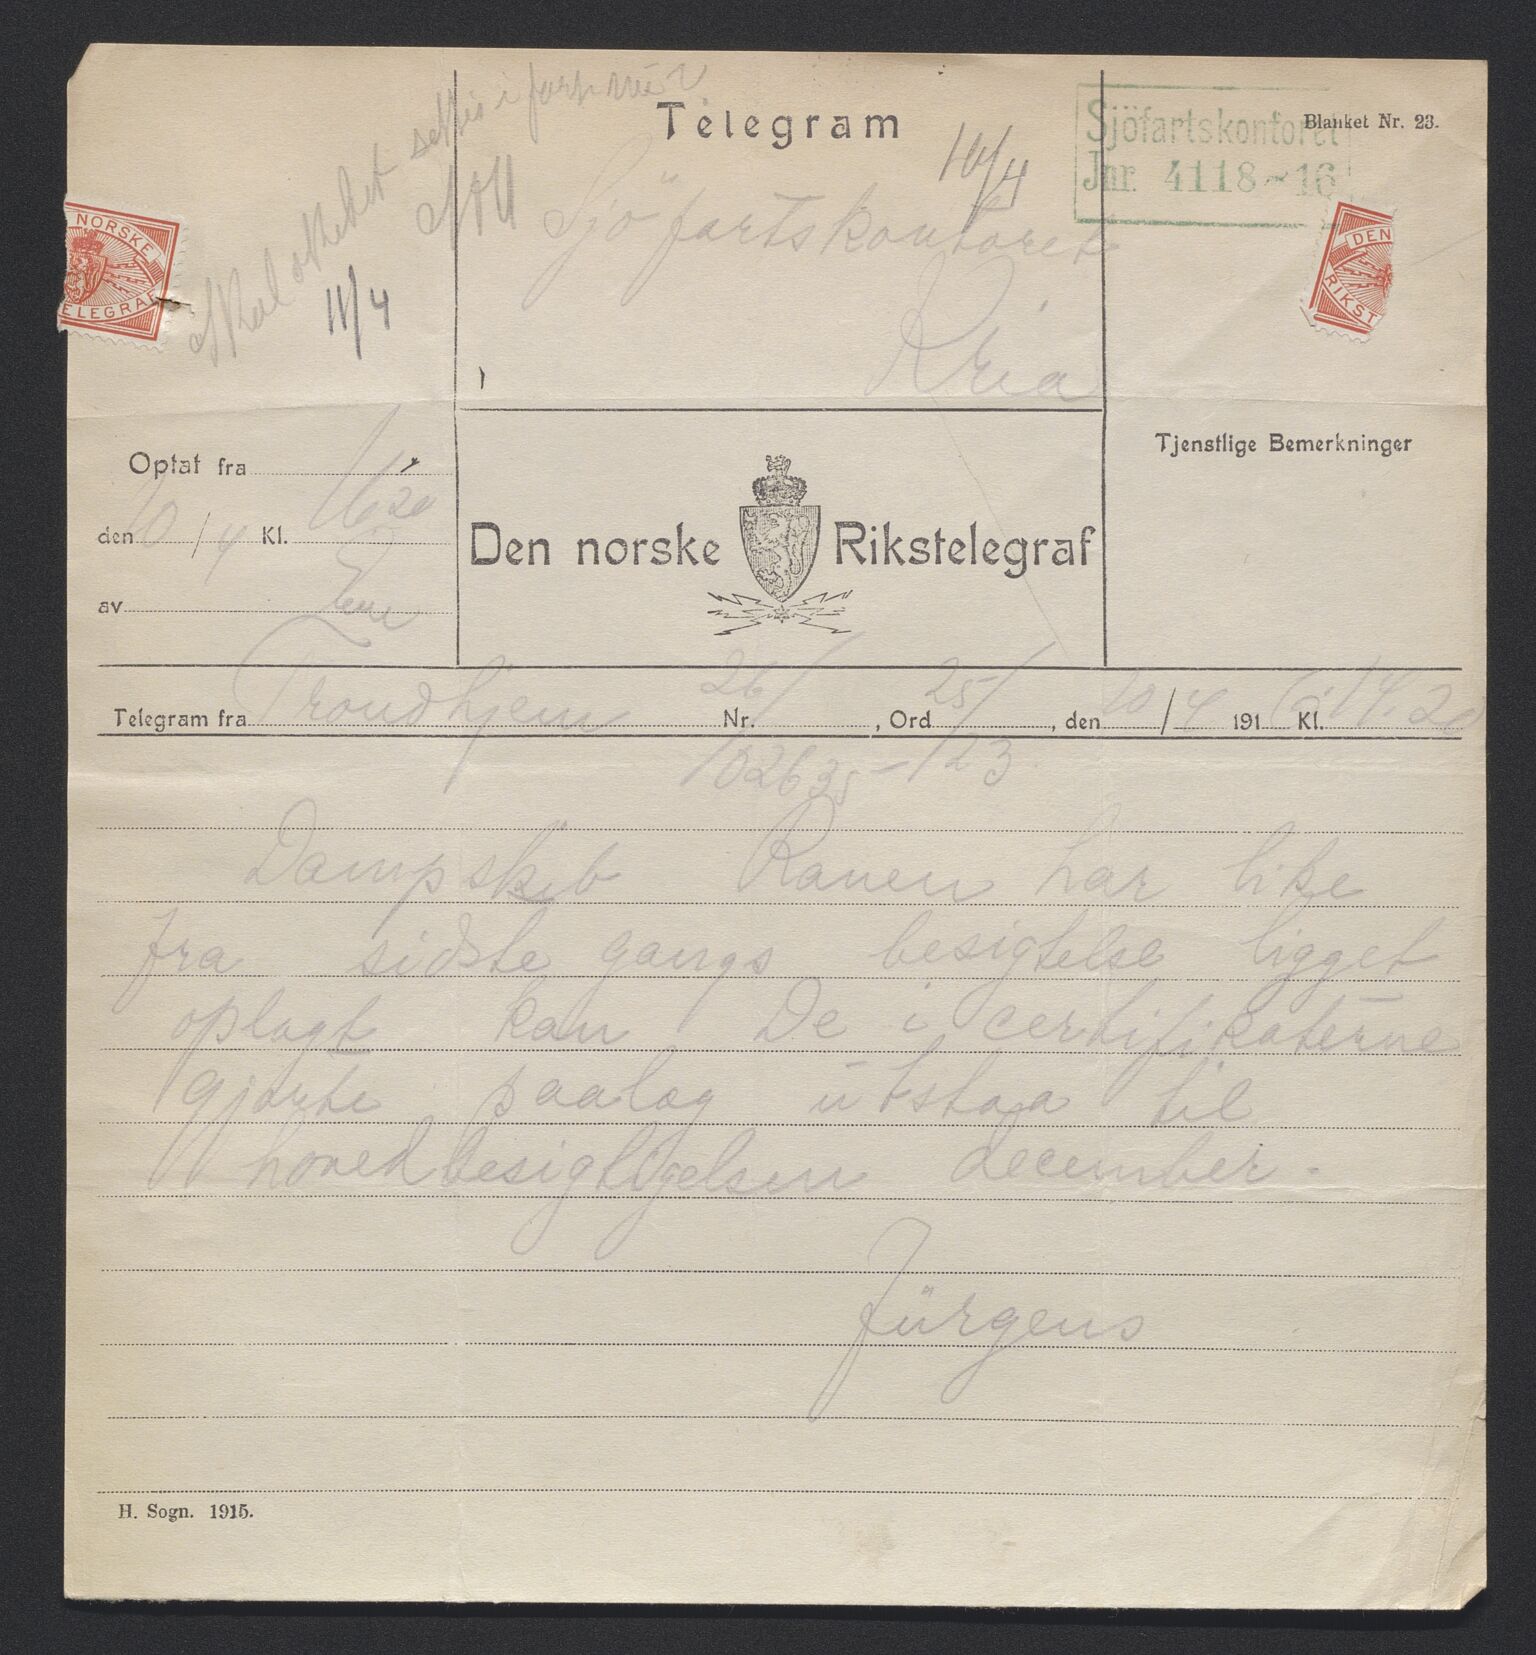 Telegram
Blanket Nr. 23.
Sjöfartskontoret
Jnr. 4118-16
10/4
Sjöfartskontoret
Kria
NORSKE
TELEGRAF
DEN
RIKST
11/4
Optat fra
den 10/4 Kl. 16 20
av
Den norske Rikstelegraf
Tjenstlige Bemerkninger
Telegram fra Trondhjem Nr. 26/, Ord 25/, den 10/4 1916 Kl. 14.20
102635 - 123.
Dampskib Ranen har like
fra sidste gangs besigtelse ligget
oplagt kan De i certifikaterne
gjorte paalæg utstaa til
hovedbesigtigelsen december.
Jürgens
H. Sogn. 1915.